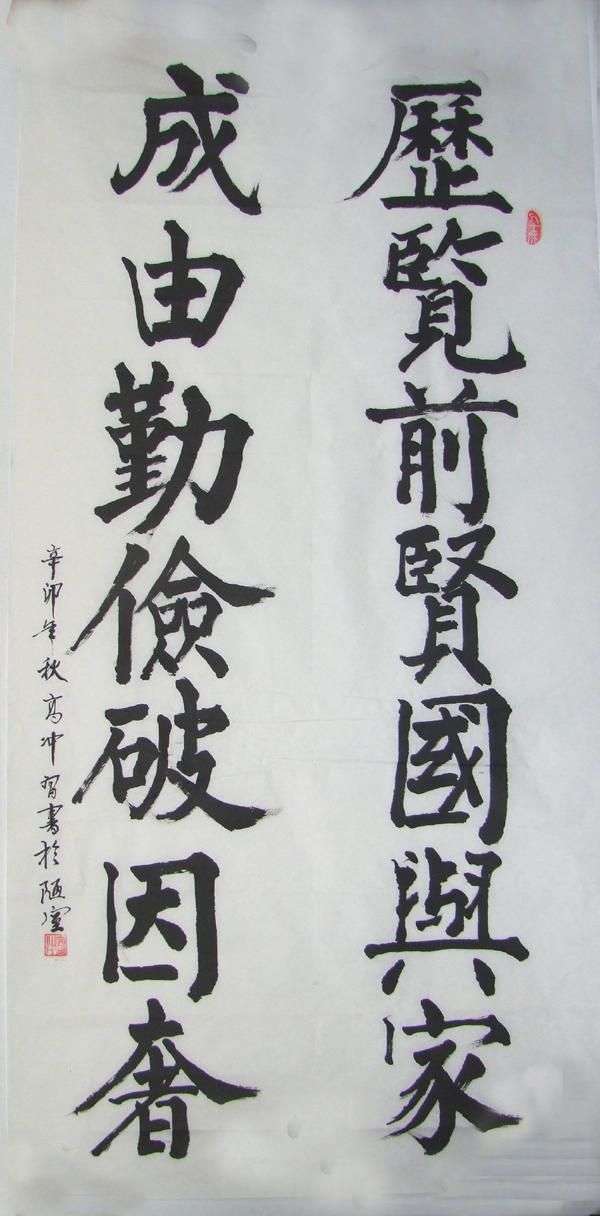 歷覽前賢國與家
成由勤儉破因奢
辛卯年秋高冲習書於陋室